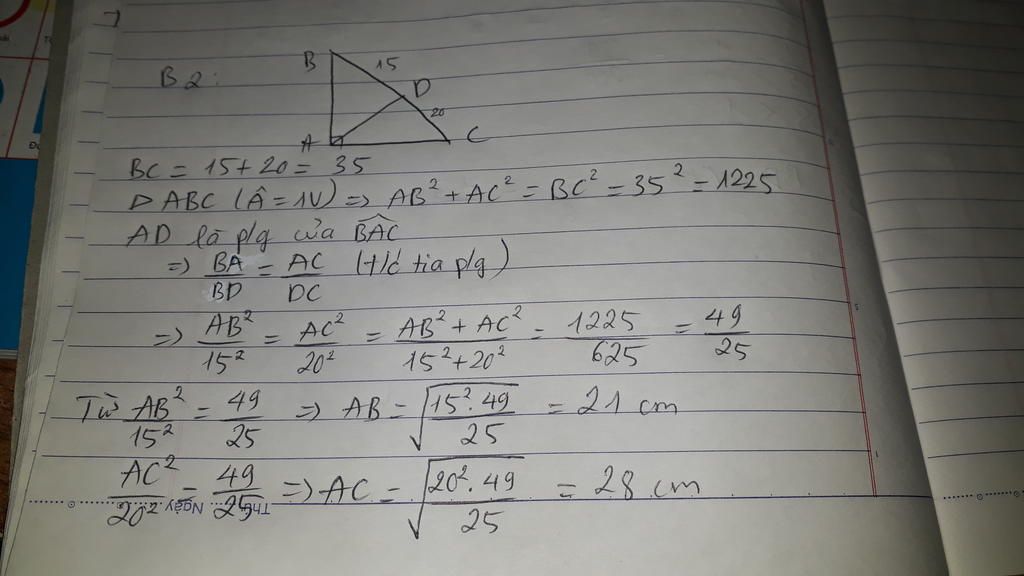 B2:
B
15
D
20
A
C
BC = 15+20 = 35
Δ ABC (Â = 1V) => AB² + AC² = BC² = 35² = 1225
AD là p/g của BAC
=> BA/BD = AC/DC (t/c tia p/g)
=> AB²/15² = AC²/20² = AB² + AC²/15² + 20² = 1225/625 = 49/25
Từ AB²/15² = 49/25 => AB = √15².49/25 = 21 cm
AC²/20² = 49/25 => AC = √20².49/25 = 28 cm
Ngày